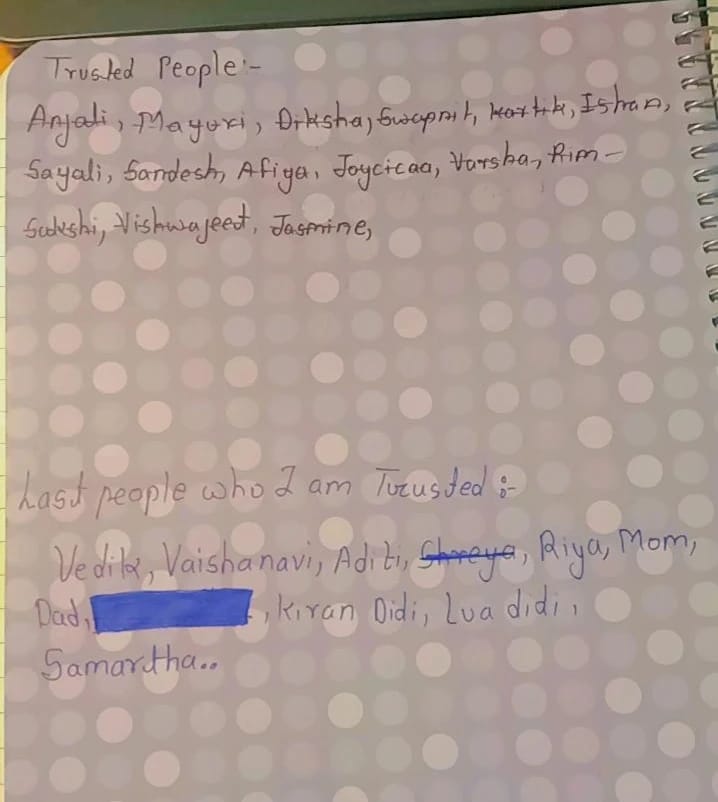 Trusted People:-
Anjali, Mayuri, Diksha, Swapnil, Kartik, Ishan,
Sayali, Sandesh, Afiya, Joycicaa, Varsha, Rim-
Sakshi, Vishwajeet, Jasmine,
Last people who I am Trusted :-
Vedika, Vaishanavi, Aditi, Shreya, Riya, Mom,
Dad, , Kiran Didi, Lua didi,
Samartha..